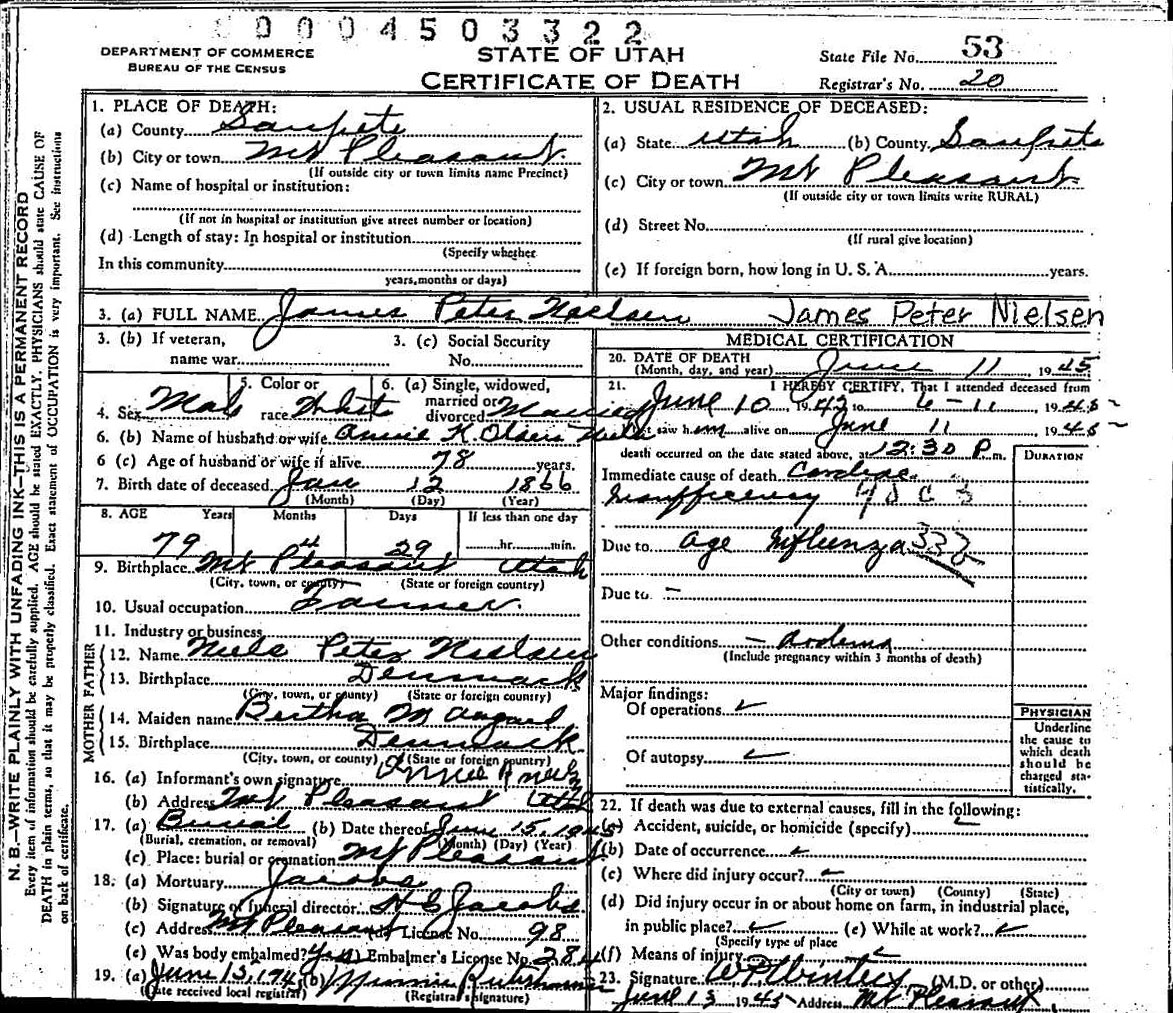 0004503322
DEPARTMENT OF COMMERCE
BUREAU OF THE CENSUS
STATE OF UTAH
CERTIFICATE OF DEATH
State File No. 53
Registrar's No. 20
N. B.—WRITE PLAINLY WITH UNFADING INK—THIS IS A PERMANENT RECORD
Every item of information should be carefully supplied. AGE should be stated EXACTLY. PHYSICIANS should state CAUSE OF
DEATH in plain terms, so that it may be properly classified. Exact statement of OCCUPATION is very important. See instructions
on back of certificate.
1. PLACE OF DEATH:
(a) County Sanpete
(b) City or town Mt Pleasant.
(If outside city or town limits name Precinct)
(c) Name of hospital or institution:
(If not in hospital or institution give street number or location)
(d) Length of stay: In hospital or institution
(Specify whether
In this community
years, months or days)
2. USUAL RESIDENCE OF DECEASED:
(a) State Utah (b) County Sanpete
(c) City or town Mt Pleasant
(If outside city or town limits write RURAL)
(d) Street No.
(If rural give location)
(e) If foreign born, how long in U. S. A. years.
3. (a) FULL NAME James Peter Nielsen James Peter Nielsen
3. (b) If veteran,
name war
3. (c) Social Security
No.
4. Sex Male
5. Color or
race White
6. (a) Single, widowed,
married or
divorced Married
6. (b) Name of husband or wife Annie K. Olsen
6 (c) Age of husband or wife if alive 78 years.
7. Birth date of deceased Jan 12 1866
(Month) (Day) (Year)
8. AGE Years Months Days If less than one day
79 4 29 hr. min.
9. Birthplace Mt Pleasant Utah
(City, town, or county) (State or foreign country)
10. Usual occupation Farmer.
11. Industry or business
FATHER
12. Name Niels Peter Nielsen
13. Birthplace Denmark
(City, town, or county) (State or foreign country)
MOTHER
14. Maiden name Bertha M
15. Birthplace Denmark
(City, town, or county) (State or foreign country)
16. (a) Informant's own signature
(b) Address Mt Pleasant Utah
17. (a) Burial (b) Date thereof June 15, 1945
(Burial, cremation, or removal) (Month) (Day) (Year)
(c) Place: burial or cremation Mt Pleasant
18. (a) Mortuary Jacobs
(b) Signature of funeral director H C Jacobs
(c) Address Mt Pleasant (d) License No. 98
(e) Was body embalmed? Yes Embalmer's License No. 284
19. (a) June 13, 1945 (b)
(Date received local registrar) (Registrar's signature)
MEDICAL CERTIFICATION
20. DATE OF DEATH
(Month, day, and year) June 11 1945
21. I HEREBY CERTIFY, That I attended deceased from
June 10, 1942 to 6-11, 1945
last saw him alive on June 11 1945
death occurred on the date stated above, at 12:30 P.m.
DURATION
Immediate cause of death Cardiac
Insufficiency
Due to age Influenza 332
Due to –
Other conditions
(Include pregnancy within 3 months of death)
Major findings:
Of operations
Of autopsy
PHYSICIAN
Underline
the cause to
which death
should be
charged sta-
tistically.
22. If death was due to external causes, fill in the following:
(a) Accident, suicide, or homicide (specify)
(b) Date of occurrence
(c) Where did injury occur?
(City or town) (County) (State)
(d) Did injury occur in or about home on farm, in industrial place,
in public place? (e) While at work?
(Specify type of place
(f) Means of injury
23. Signature (M.D. or other)
June 13 1945 Address Mt Pleasant